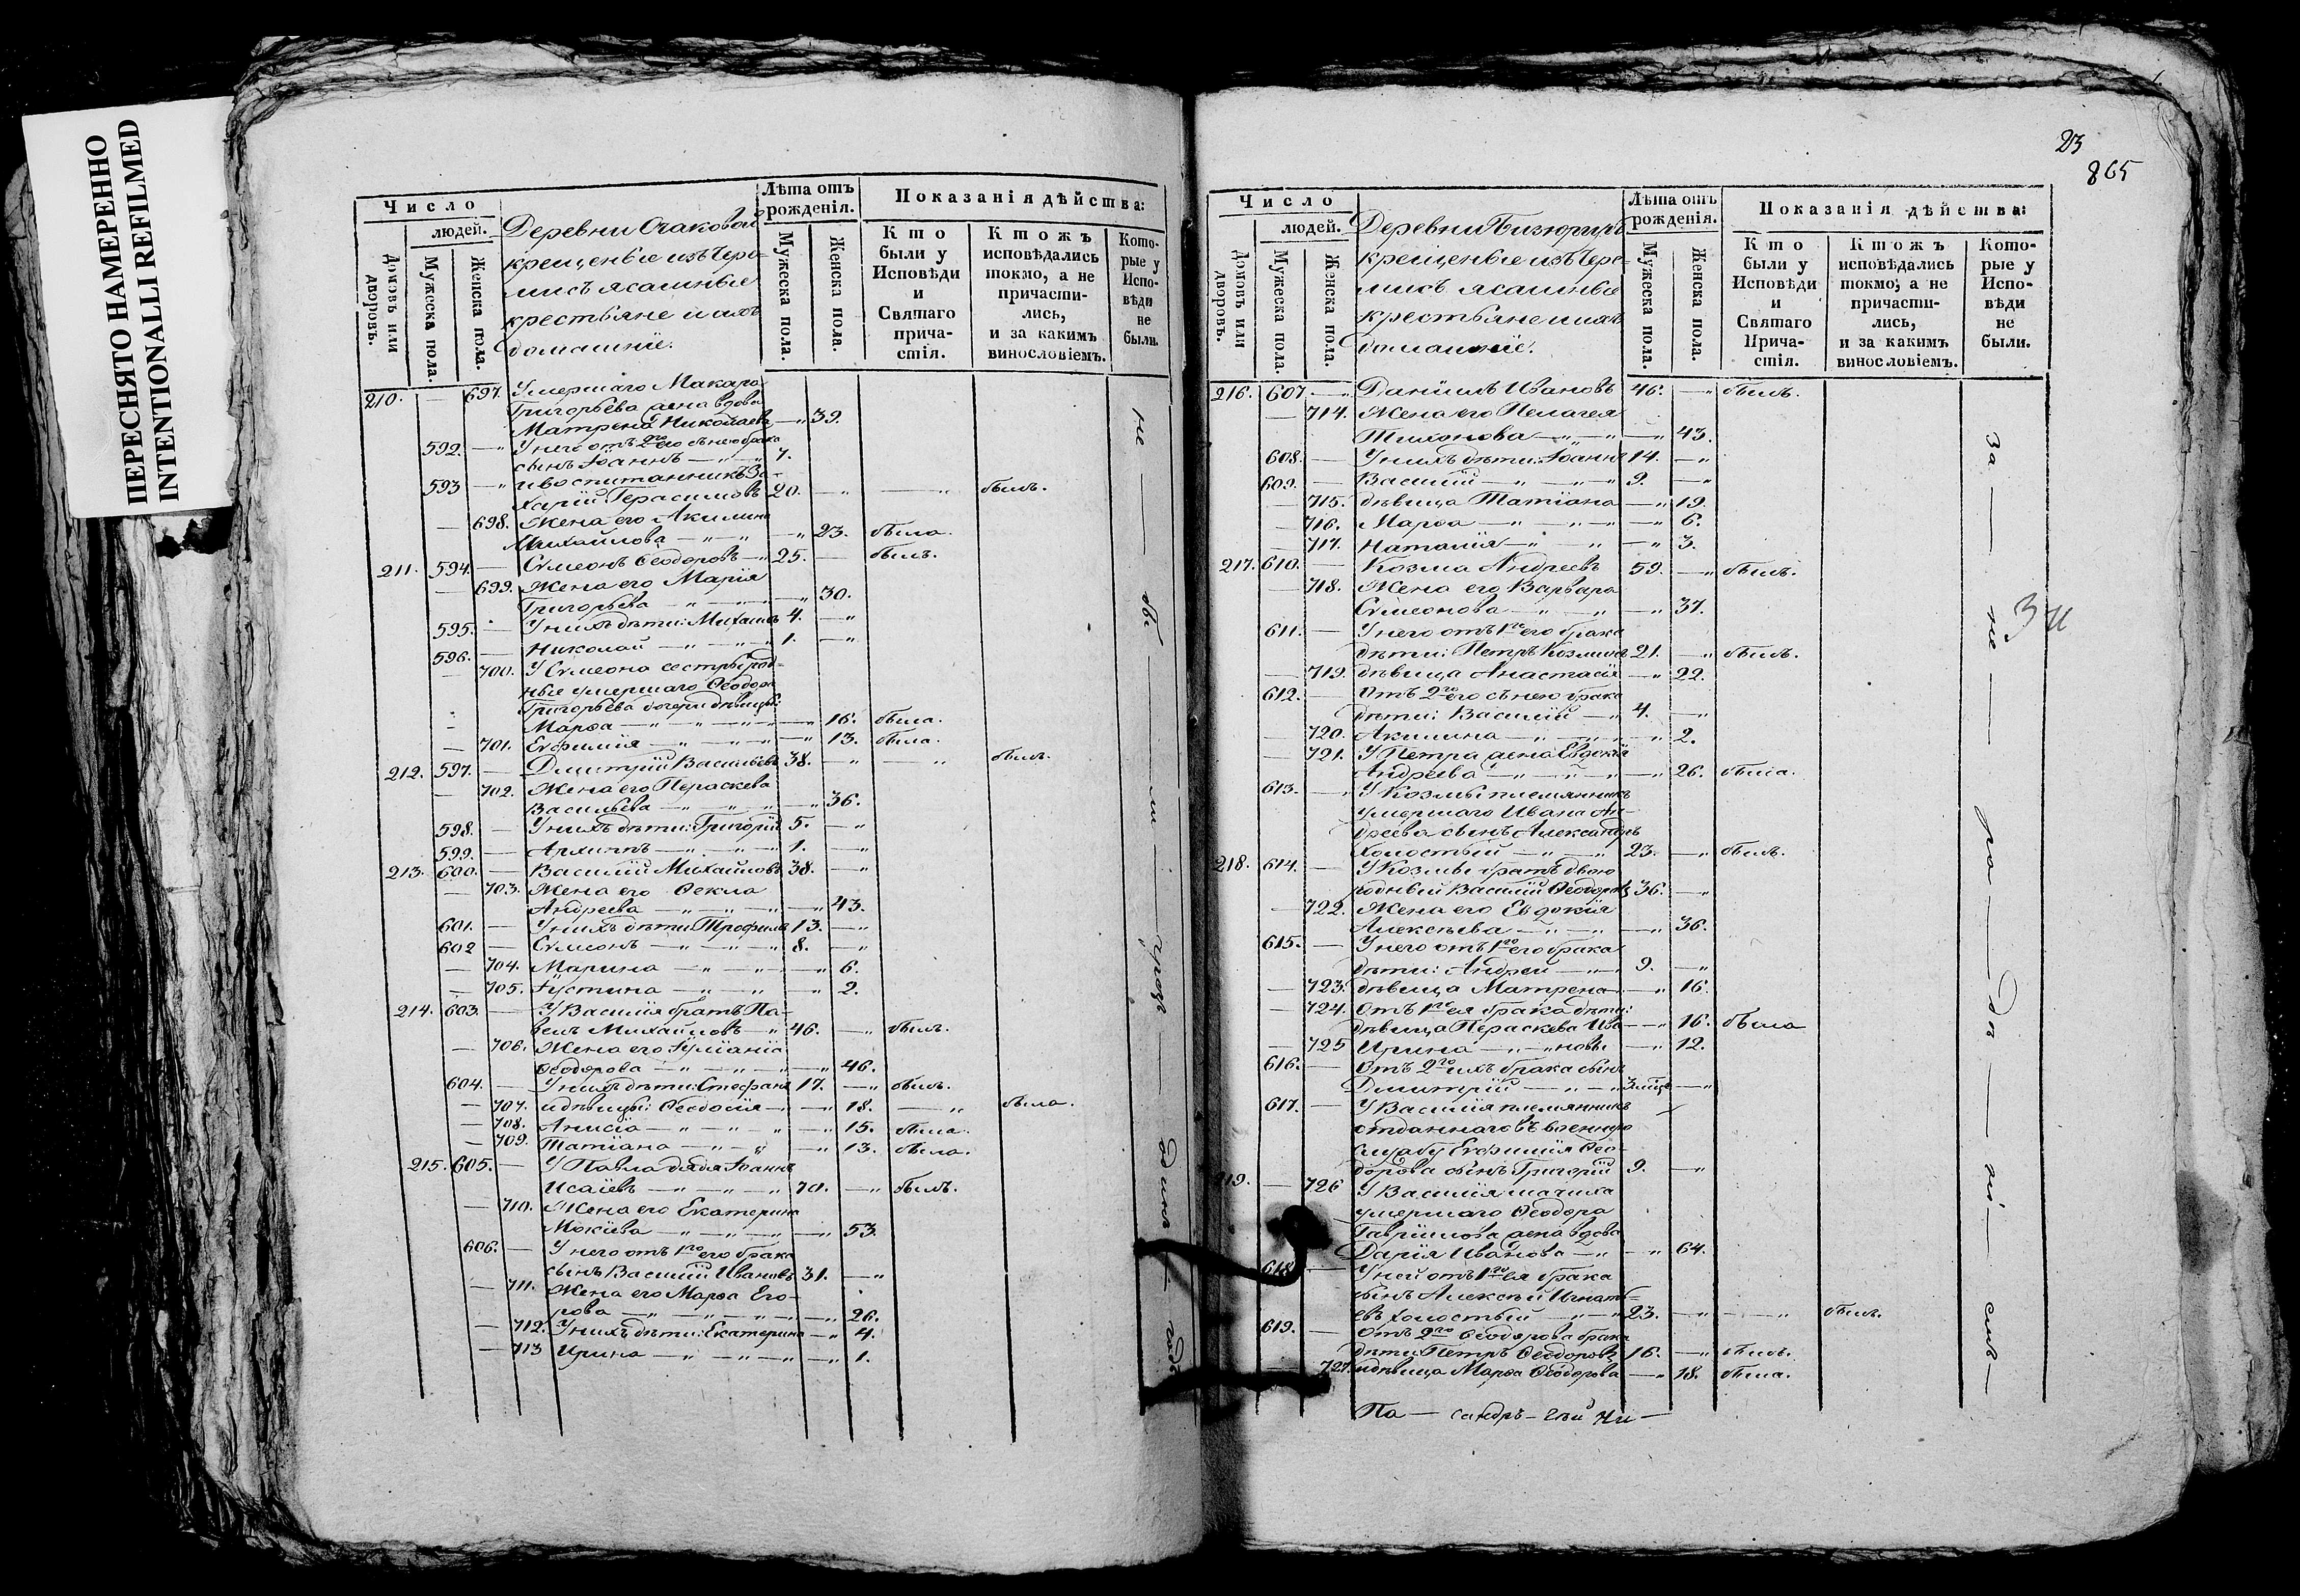 ПЕРЕСНЯТО НАМЕРЕННО
INTENTIONALLI REFILMED
Число
людей.
Домовъ или дворовъ.
Мужеска пола.
Женска пола.
Деревни
крещеные изъ Чере-
мисъ ясашные
крестьяне и ихъ
домашніе.
Лѣта отъ рожденія.
Мужеска пола.
Женска пола.
Показанія дѣйства:
Кто были у Исповѣди и Святаго прича-стія.
Ктожъ исповѣдались токмо, а не причасти-лись, и за какимъ винословіемъ.
Кото-рые у Испо-вѣди не были.
210. — 697. Умершаго Макара
Григорьева жена вдова
Матрена Николаева — 39.
592. — У него отъ 2го его съ нею брака
сынъ Іоаннъ — 7.
593 — и воспитанникъ За-
харій Герасимовъ 20. — — былъ.
— 698. Жена его Акилина
Михайлова — 23. была.
211. 594. — Сѵмеонъ Ѳеодоровъ 25. — былъ.
— 699. Жена его Марія
Григорьева — 30.
595. — У нихъ дѣти: Михаилъ 4. —
596. — Николай — 1. —
— 700. У Сѵмеона сестры род-
ные умершаго Ѳеодора
Григорьева дочери дѣвицы:
Марѳа — 16. была.
— 701. Евфимія — 13. была.
212. 597. — Димитрій Васильевъ 38. — — былъ.
— 702. Жена его Параскева
Васильева — 36.
598. — У нихъ дѣти: Григорій 5. —
599. — Архипъ — 1. —
213. 600. — Василій Михайловъ 38. —
— 703. Жена его Ѳекла
Андреева — 43.
601. — У нихъ дѣти: Трофимъ 13. —
602 — Сѵмеонъ — 8. —
— 704. Марина — 6.
— 705. Іустина — 2.
214. 603. — У Василія братъ Па-
велъ Михайловъ — 46. — былъ.
— 706. Жена его Іуліанія
Ѳеодорова — 46.
604. — У нихъ дѣти: Стефанъ 17. — былъ.
— 707. и дѣвицы: Ѳеодосія — 18. — была.
— 708. Анисія — 15. была.
— 709. Татіана — 13. была.
215. 605. — У Павла дядя Іоаннъ
Исаіевъ — 70. — былъ.
— 710. Жена его Екатерина
Мокіева — 53.
606. — У него отъ 1го его брака
сынъ Василій Ивановъ 31. —
— 711. Жена его Марѳа Его-
рова — 26.
— 712. У нихъ дѣти: Екатерина — 4.
— 713 Ирина — 1.
23
865
Число
людей.
Домовъ или дворовъ.
Мужеска пола.
Женска пола.
Деревни
крещеные изъ Чере-
мисъ ясашные
крестьяне и ихъ
домашніе.
Лѣта отъ рожденія.
Мужеска пола.
Женска пола.
Показанія дѣйства:
Кто были у Исповѣди и Святаго Прича-стія.
Ктожъ исповѣдались токмо, а не причасти-лись, и за какимъ винословіемъ.
Кото-рые у Испо-вѣди не были.
216. 607. — Даніилъ Ивановъ 46. — былъ.
— 714. Жена его Пелагея
Тихонова — 43.
608. — У нихъ дѣти: Іоаннъ 14. —
609. — Василій — 9. —
— 715. дѣвица Татіана — 19.
— 716. Марѳа — 6.
— 717. Наталія — 3.
217. 610. — Козма Андреевъ 59. — былъ.
— 718. Жена его Варвара
Сѵмеонова — 37.
611. — У него отъ 1го его брака
дѣти: Петръ Козминъ 21. — былъ.
— 719. дѣвица Анастасія — 22.
612. — Отъ 2го его съ нею брака
дѣти: Василій — 4. —
— 720. Акилина — 2.
— 721. У Петра жена Евдокія
Андреева — 26. была.
613. — У Козмы племянникъ
умершаго Ивана Ан-
дреева сынъ Александръ
холостый — 23. — былъ.
218. 614. — У Козмы братъ двою-
родный Василій Ѳеодоровъ 36. —
— 722. Жена его Евдокія
Алексѣева — 36.
615. — У него отъ 1го его брака
дѣти: Андрей — 9. —
— 723. дѣвица Матрена — 16.
— 724. Отъ 1го ея брака дѣти:
дѣвица Параскева Ива- — 16. была
— 725 Ирина — новы. — 12.
616. — Отъ 2го ихъ брака сынъ
Димитрій —
617. — У Василія племянникъ
отданнаго въ военную
службу Евфимія Ѳео-
дорова сынъ Григорій 9. —
219. — 726 У Василія мачиха
умершаго Ѳеодора
Гавриилова жена вдова
Дарія Иванова — 64.
618 — У ней отъ 1го ея брака
сынъ Алексѣй Игнать-
евъ холостый — 23. — — былъ.
619. — Отъ 2го Ѳеодорова брака
дѣти: Петръ Ѳеодоровъ 16. — былъ.
727. и дѣвица Марѳа Ѳеодорова — 18. была.